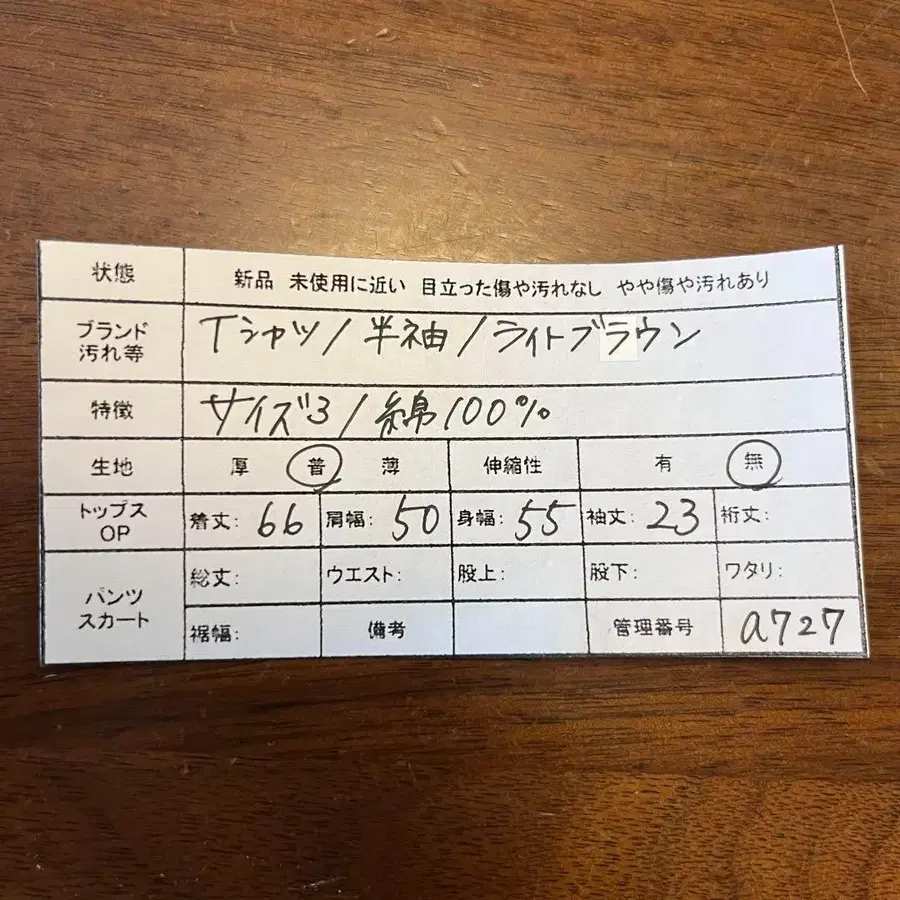 状態 新品 未使用に近い 目立った傷や汚れなし やや傷や汚れあり
ブランド 汚れ等 Tシャツ/半袖/ライトブラウン
特徴 サイズ3/綿100%
生地 厚 普 薄 伸縮性 有 無
トップス OP 着丈: 66 肩幅: 50 身幅: 55 袖丈: 23 裄丈:
パンツ スカート 総丈: ウエスト: 股上: 股下: ワタリ:
裾幅: 備考 管理番号 a727